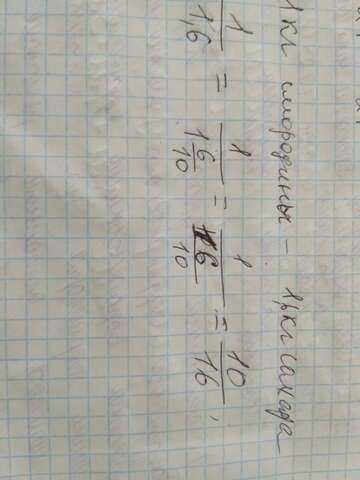 1кг смородины – 1,6кг сахара
1/1,6 = 1/(1 6/10) = 1/(16/10) = 10/16,